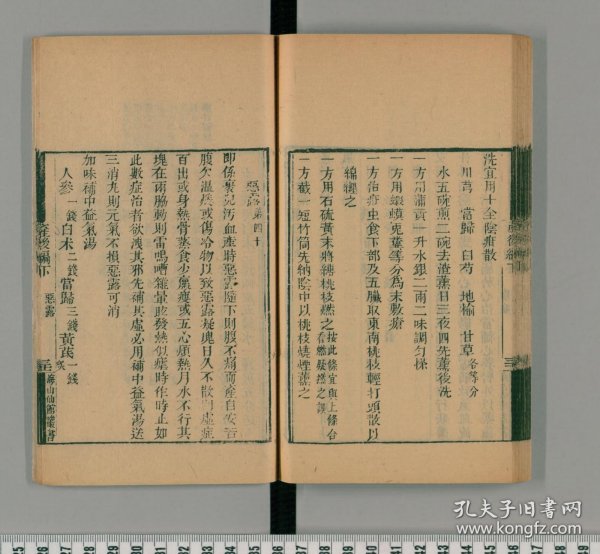 洗宜用十全陰疳散
川芎 當歸 白芍 地榆 甘草各等分
水五碗煎二碗去渣薰日三夜四先薰後洗
一方用蒲黃一升水銀二兩二味調勻搽
一方用蝦蟆兎糞等分爲末敷瘡
一方治疳虫食下部及五臟取東南桃枝輕打頭散以
綿纏之
一方用石硫黃末將縛桃枝燃之按此條宜與上條合看燃疑燃之譌
一方截一短竹筒先納陰中以桃枝燒煙薰之
惡露第四十
卽係裹兒汚血產時惡露隨下則腹不痛而產自安若
腹欠溫煖或傷冷物以致惡露凝塊日久不散則虛症
百出或身熱骨蒸食少羸瘦或五心煩熱月水不行其
塊在兩脇動則雷鳴嘈雜暈眩發熱似瘧時作時止如
此數症治者欲洩其邪先補其虛必用補中益氣湯送
三消丸則元氣不損惡露可消
加味補中益氣湯
人參一錢 白术二錢 當歸三錢 黃茋一錢 炙
產後編下
惡露
海山仙館叢書
孔夫子旧书网
www.kongfz.com